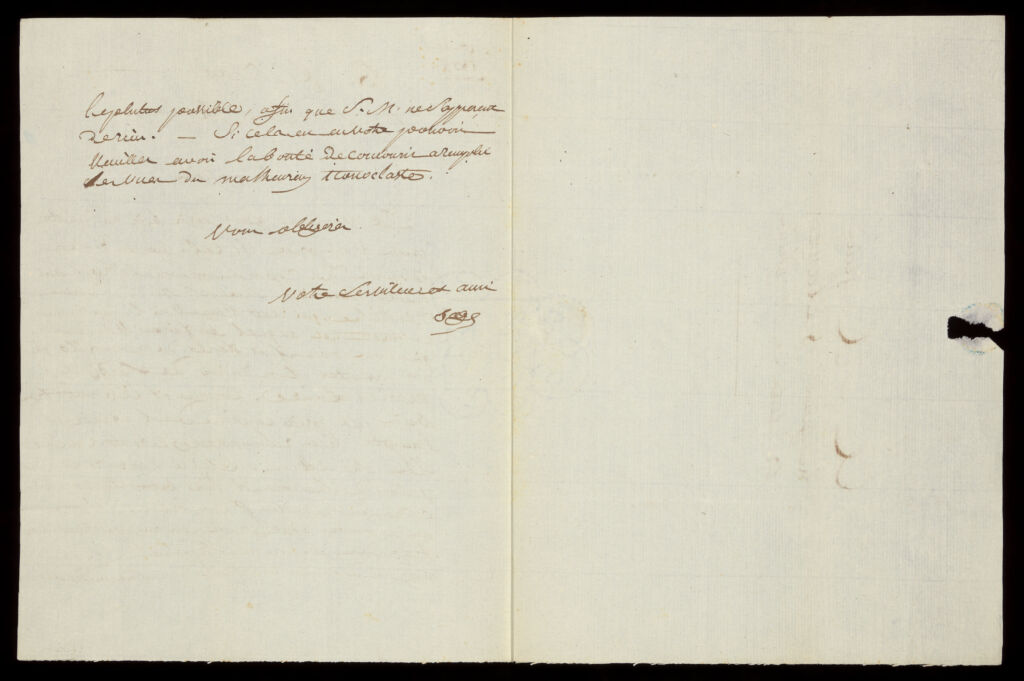 le plutot possible, afin que S. M. ne s'apperçoive
de rien. — Si cela en en votre pouvoir
Veuillez avoir la bonté de concourir a remplir
les vues du malheureux iconoclaste.
Vous obligerez
Votre serviteur et ami